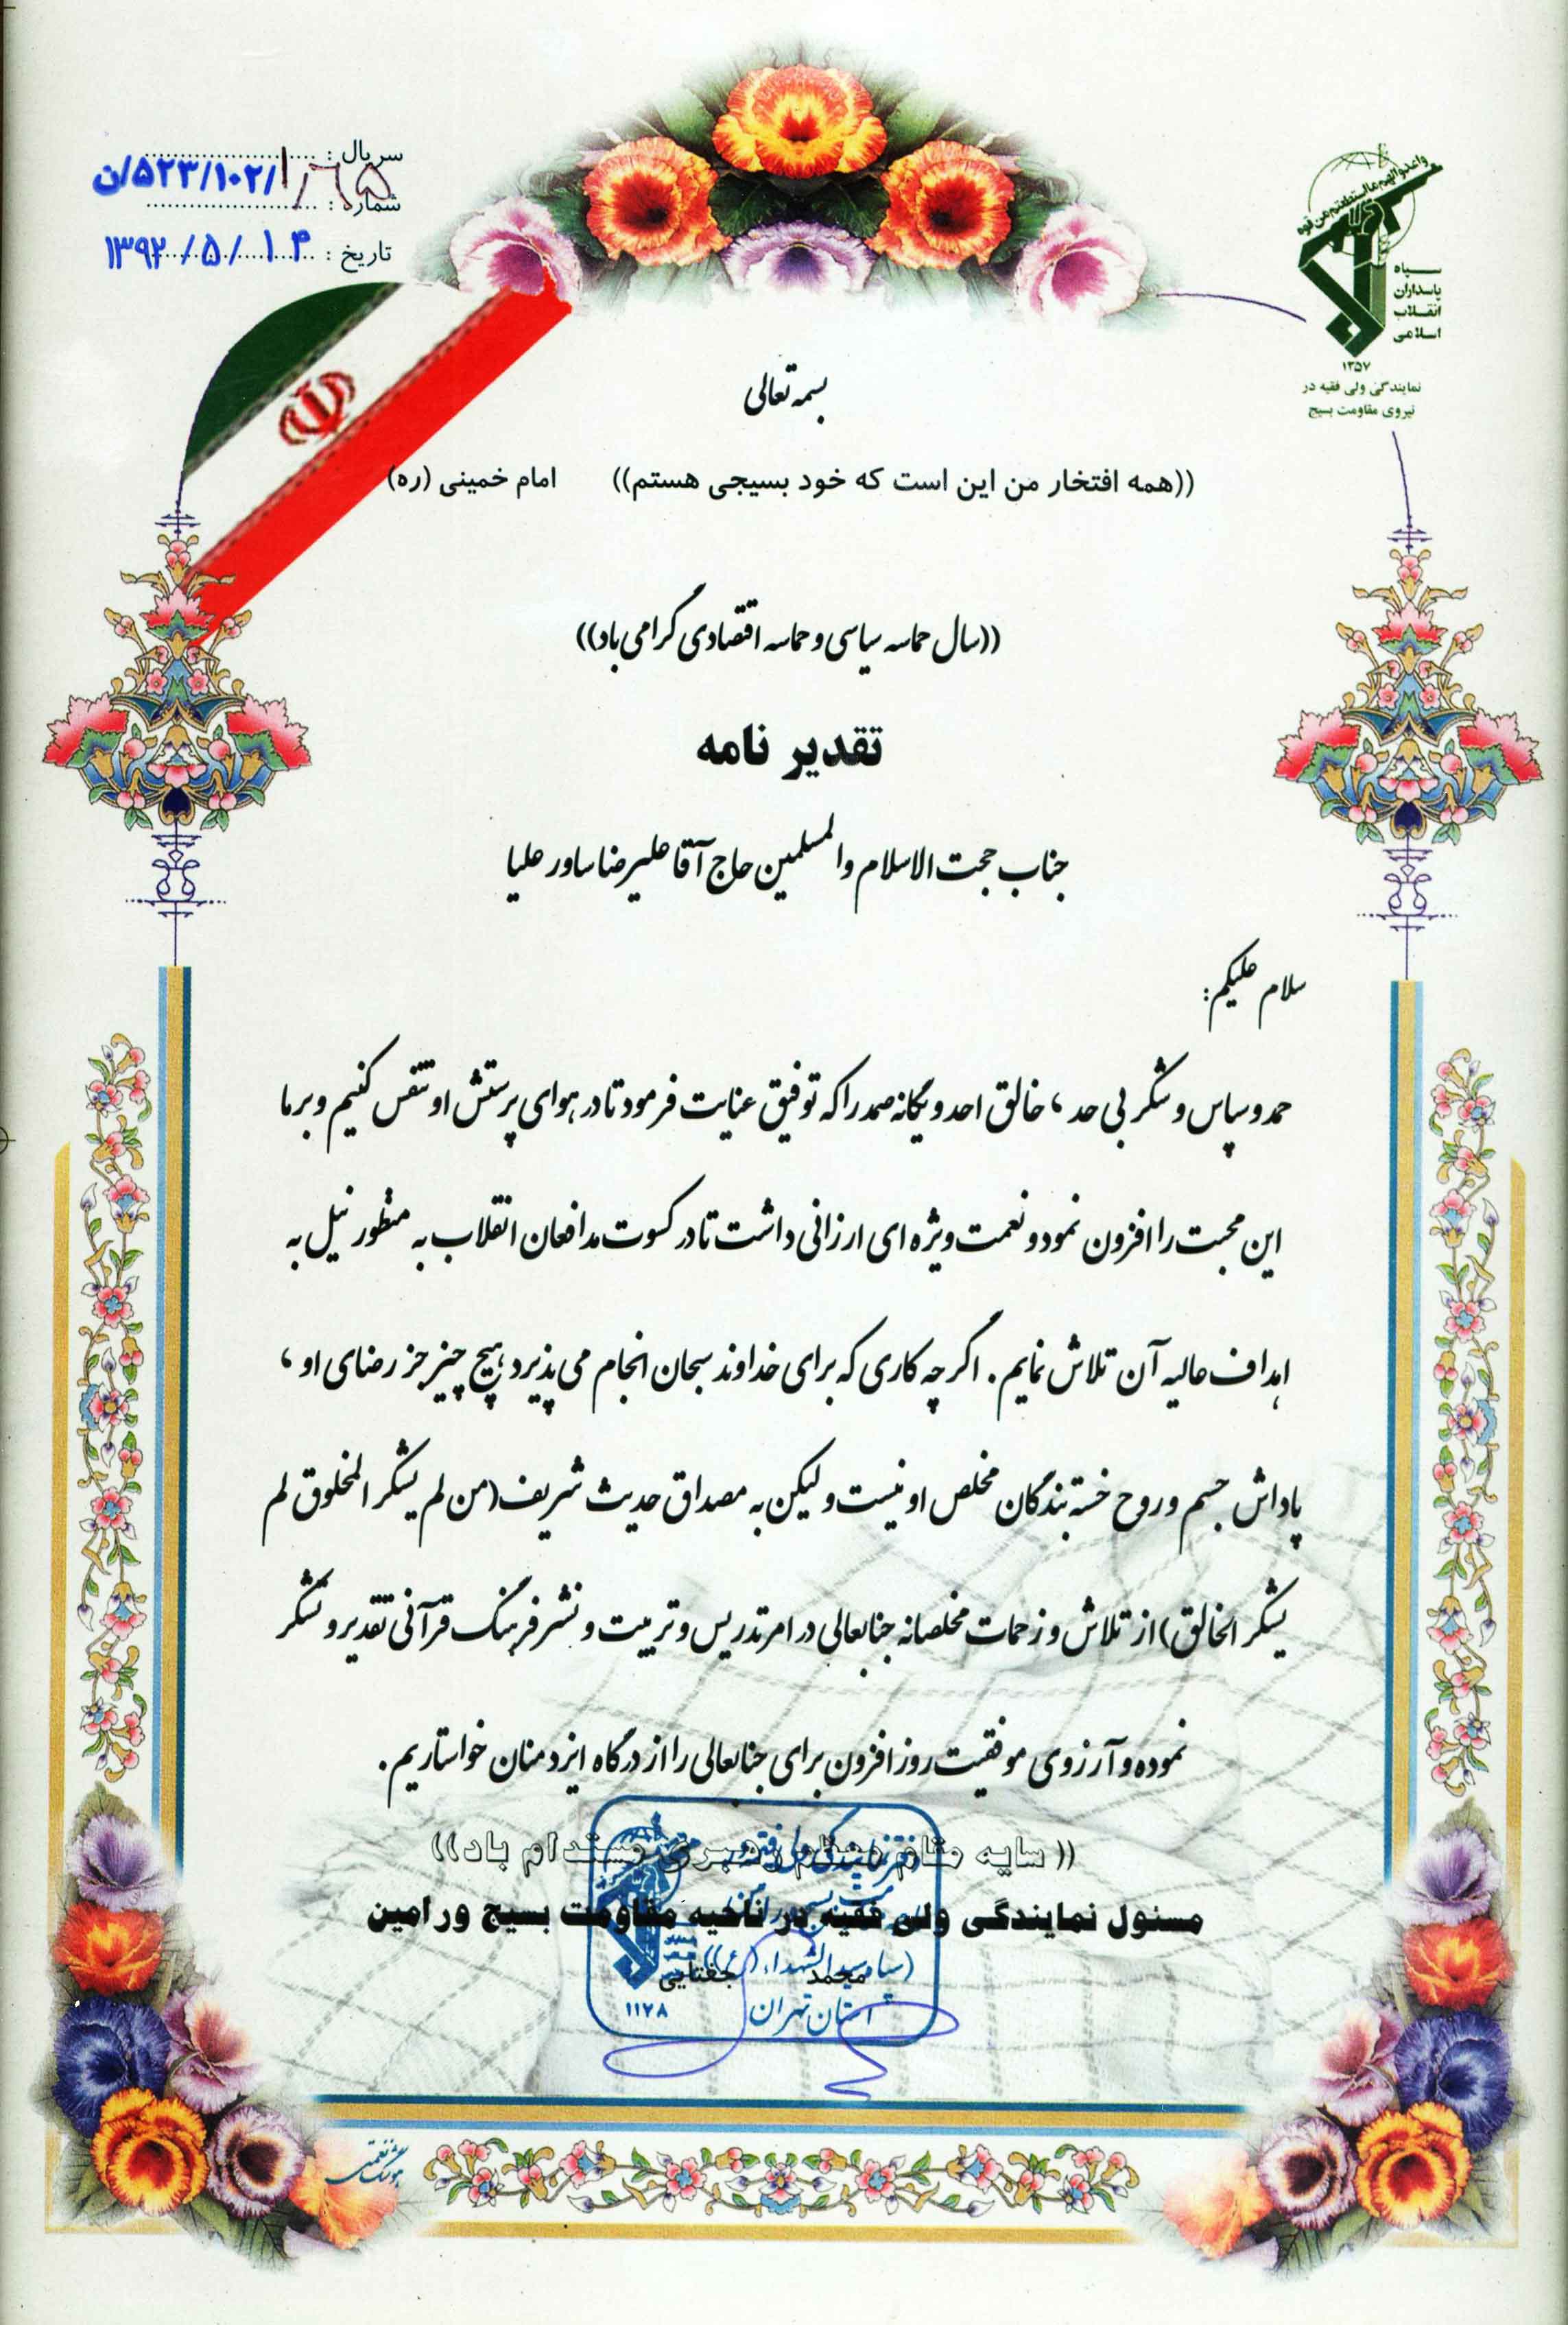 سریال :
ن/۵۲۳/۱۰۲/
شماره :
تاریخ : ۱۳۹۲/۵/۱۳
واعدوا لهم ما استطعتم من قوة
سپاه
پاسداران
انقلاب
اسلامی
۱۳۵۷
نمایندگی ولی فقیه در
نیروی مقاومت بسیج
بسمه تعالی
((همه افتخار من این است که خود بسیجی هستم)) امام خمینی (ره)
((سال حماسه سیاسی و حماسه اقتصادی گرامی باد))
تقدیر نامه
جناب حجت الاسلام والمسلمین حاج آقا علیرضا ساور علیا
سلام علیکم:
حمد و سپاس و شکر بی حد ، خالق احد و یگانه صمد را که توفیق عنایت فرمود تا در هوای پرستش او تنفس کنیم و بر ما
این محبت را افزون نمود و نعمت ویژه ای ارزانی داشت تا در کسوت مدافعان انقلاب به منظور نیل به
اهداف عالیه آن تلاش نمایم. اگر چه کاری که برای خداوند سبحان انجام می پذیرد ،هیچ چیز جز رضای او ،
پاداش جسم و روح خسته بندگان مخلص او نیست و لیکن به مصداق حدیث شریف(من لم یشکر المخلوق لم
یشکر الخالق) از تلاش و زحمات مخلصانه جنابعالی در امر تدریس و تربیت و نشر فرهنگ قرآنی تقدیر و تشکر
نموده و آرزوی موفقیت روز افزون برای جنابعالی را از درگاه ایزد منان خواستاریم.
(( سایه مقام معظم رهبری مستدام باد))
مسئول نمایندگی ولی فقیه در ناحیه مقاومت بسیج ورامین
محمد جغتایی
دفتر نمایندگی ولی فقیه در
(سپاه سیدالشهداء (ع))
استان تهران
۱۱۲۸
هوشنگ نعمتی